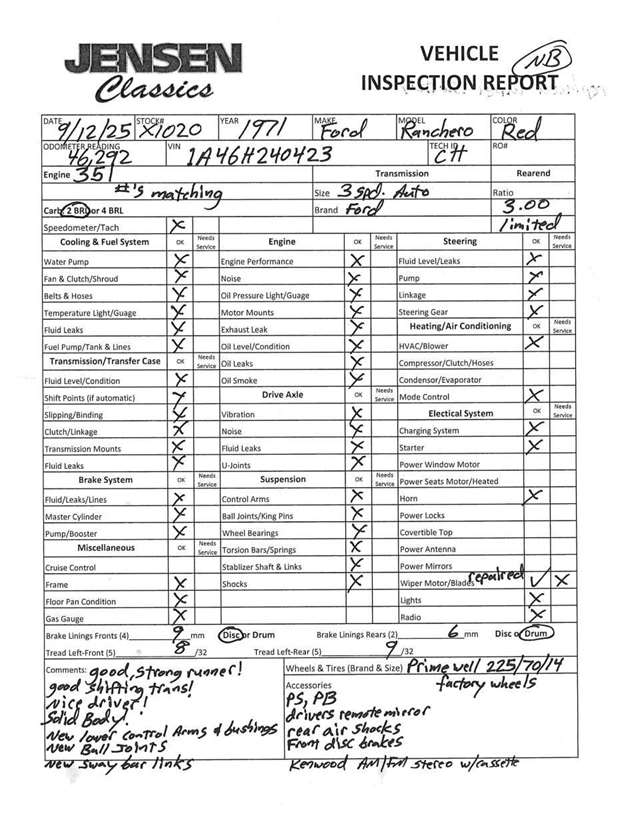 JENSEN
Classics
VEHICLE
INSPECTION REPORT
NB
DATE 9/12/25 STOCK# X1020 YEAR 1971 MAKE Ford MODEL Ranchero COLOR Red
ODOMETER READING 46,292 VIN 1A46H240423 TECH ID CH RO#
Engine 351 Transmission Rearend
#'s matching Size 3 spd. Auto Ratio
Carb 2 BRL or 4 BRL Brand Ford 3.00
Speedometer/Tach X limited
Cooling & Fuel System OK Needs Service Engine OK Needs Service Steering OK Needs Service
Water Pump X Engine Performance X Fluid Level/Leaks X
Fan & Clutch/Shroud X Noise X Pump X
Belts & Hoses X Oil Pressure Light/Guage X Linkage X
Temperature Light/Guage X Motor Mounts X Steering Gear X
Fluid Leaks X Exhaust Leak X Heating/Air Conditioning OK Needs Service
Fuel Pump/Tank & Lines X Oil Level/Condition X HVAC/Blower X
Transmission/Transfer Case OK Needs Service Oil Leaks X Compressor/Clutch/Hoses
Fluid Level/Condition X Oil Smoke X Condensor/Evaporator
Shift Points (if automatic) X Drive Axle OK Needs Service Mode Control X
Slipping/Binding X Vibration X Electical System OK Needs Service
Clutch/Linkage X Noise X Charging System X
Transmission Mounts X Fluid Leaks X Starter X
Fluid Leaks X U-Joints X Power Window Motor
Brake System OK Needs Service Suspension OK Needs Service Power Seats Motor/Heated
Fluid/Leaks/Lines X Control Arms X Horn X
Master Cylinder X Ball Joints/King Pins X Power Locks
Pump/Booster X Wheel Bearings X Covertible Top
Miscellaneous OK Needs Service Torsion Bars/Springs X Power Antenna
Cruise Control Stablizer Shaft & Links X Power Mirrors
Frame X Shocks X Wiper Motor/Blades repaired ✓ X
Floor Pan Condition X Lights X
Gas Gauge X Radio X
Brake Linings Fronts (4) 9 mm Disc or Drum Brake Linings Rears (2) 6 mm Disc or Drum
Tread Left-Front (5) 8 /32 Tread Left-Rear (5) 9 /32
Comments: good, strong runner!
good shifting trans!
Nice driver!
Solid Body!
New lower control Arms & bushings
New Ball Joints
New sway bar links
Wheels & Tires (Brand & Size) Primewell 225/70/14
factory wheels
Accessories
PS, PB
drivers remote mirror
rear air shocks
Front disc brakes
Kenwood AM/FM stereo w/cassette